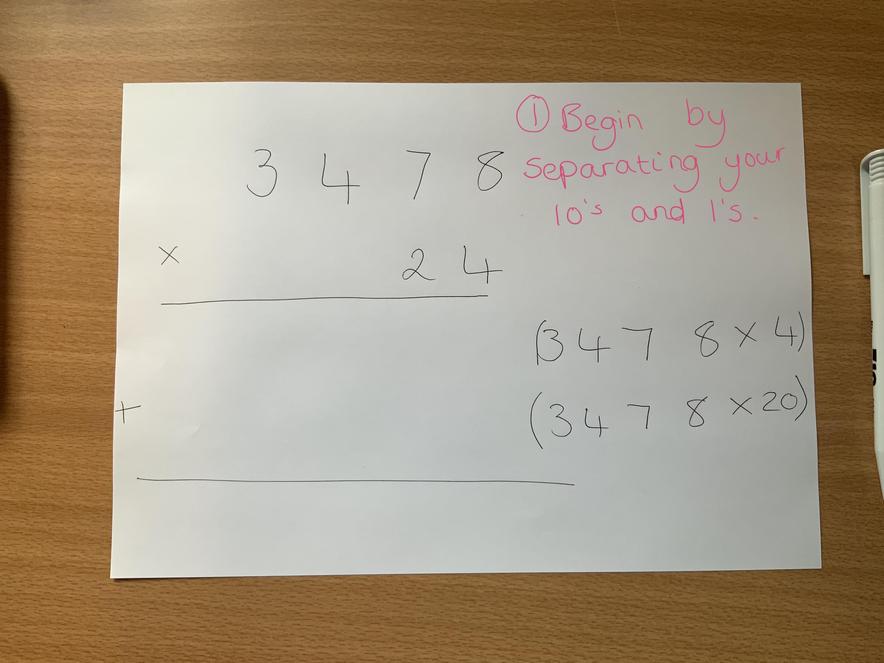 ① Begin by
separating your
10's and 1's.
3 4 7 8
× 2 4
(3 4 7 8 × 4)
+ (3 4 7 8 × 20)